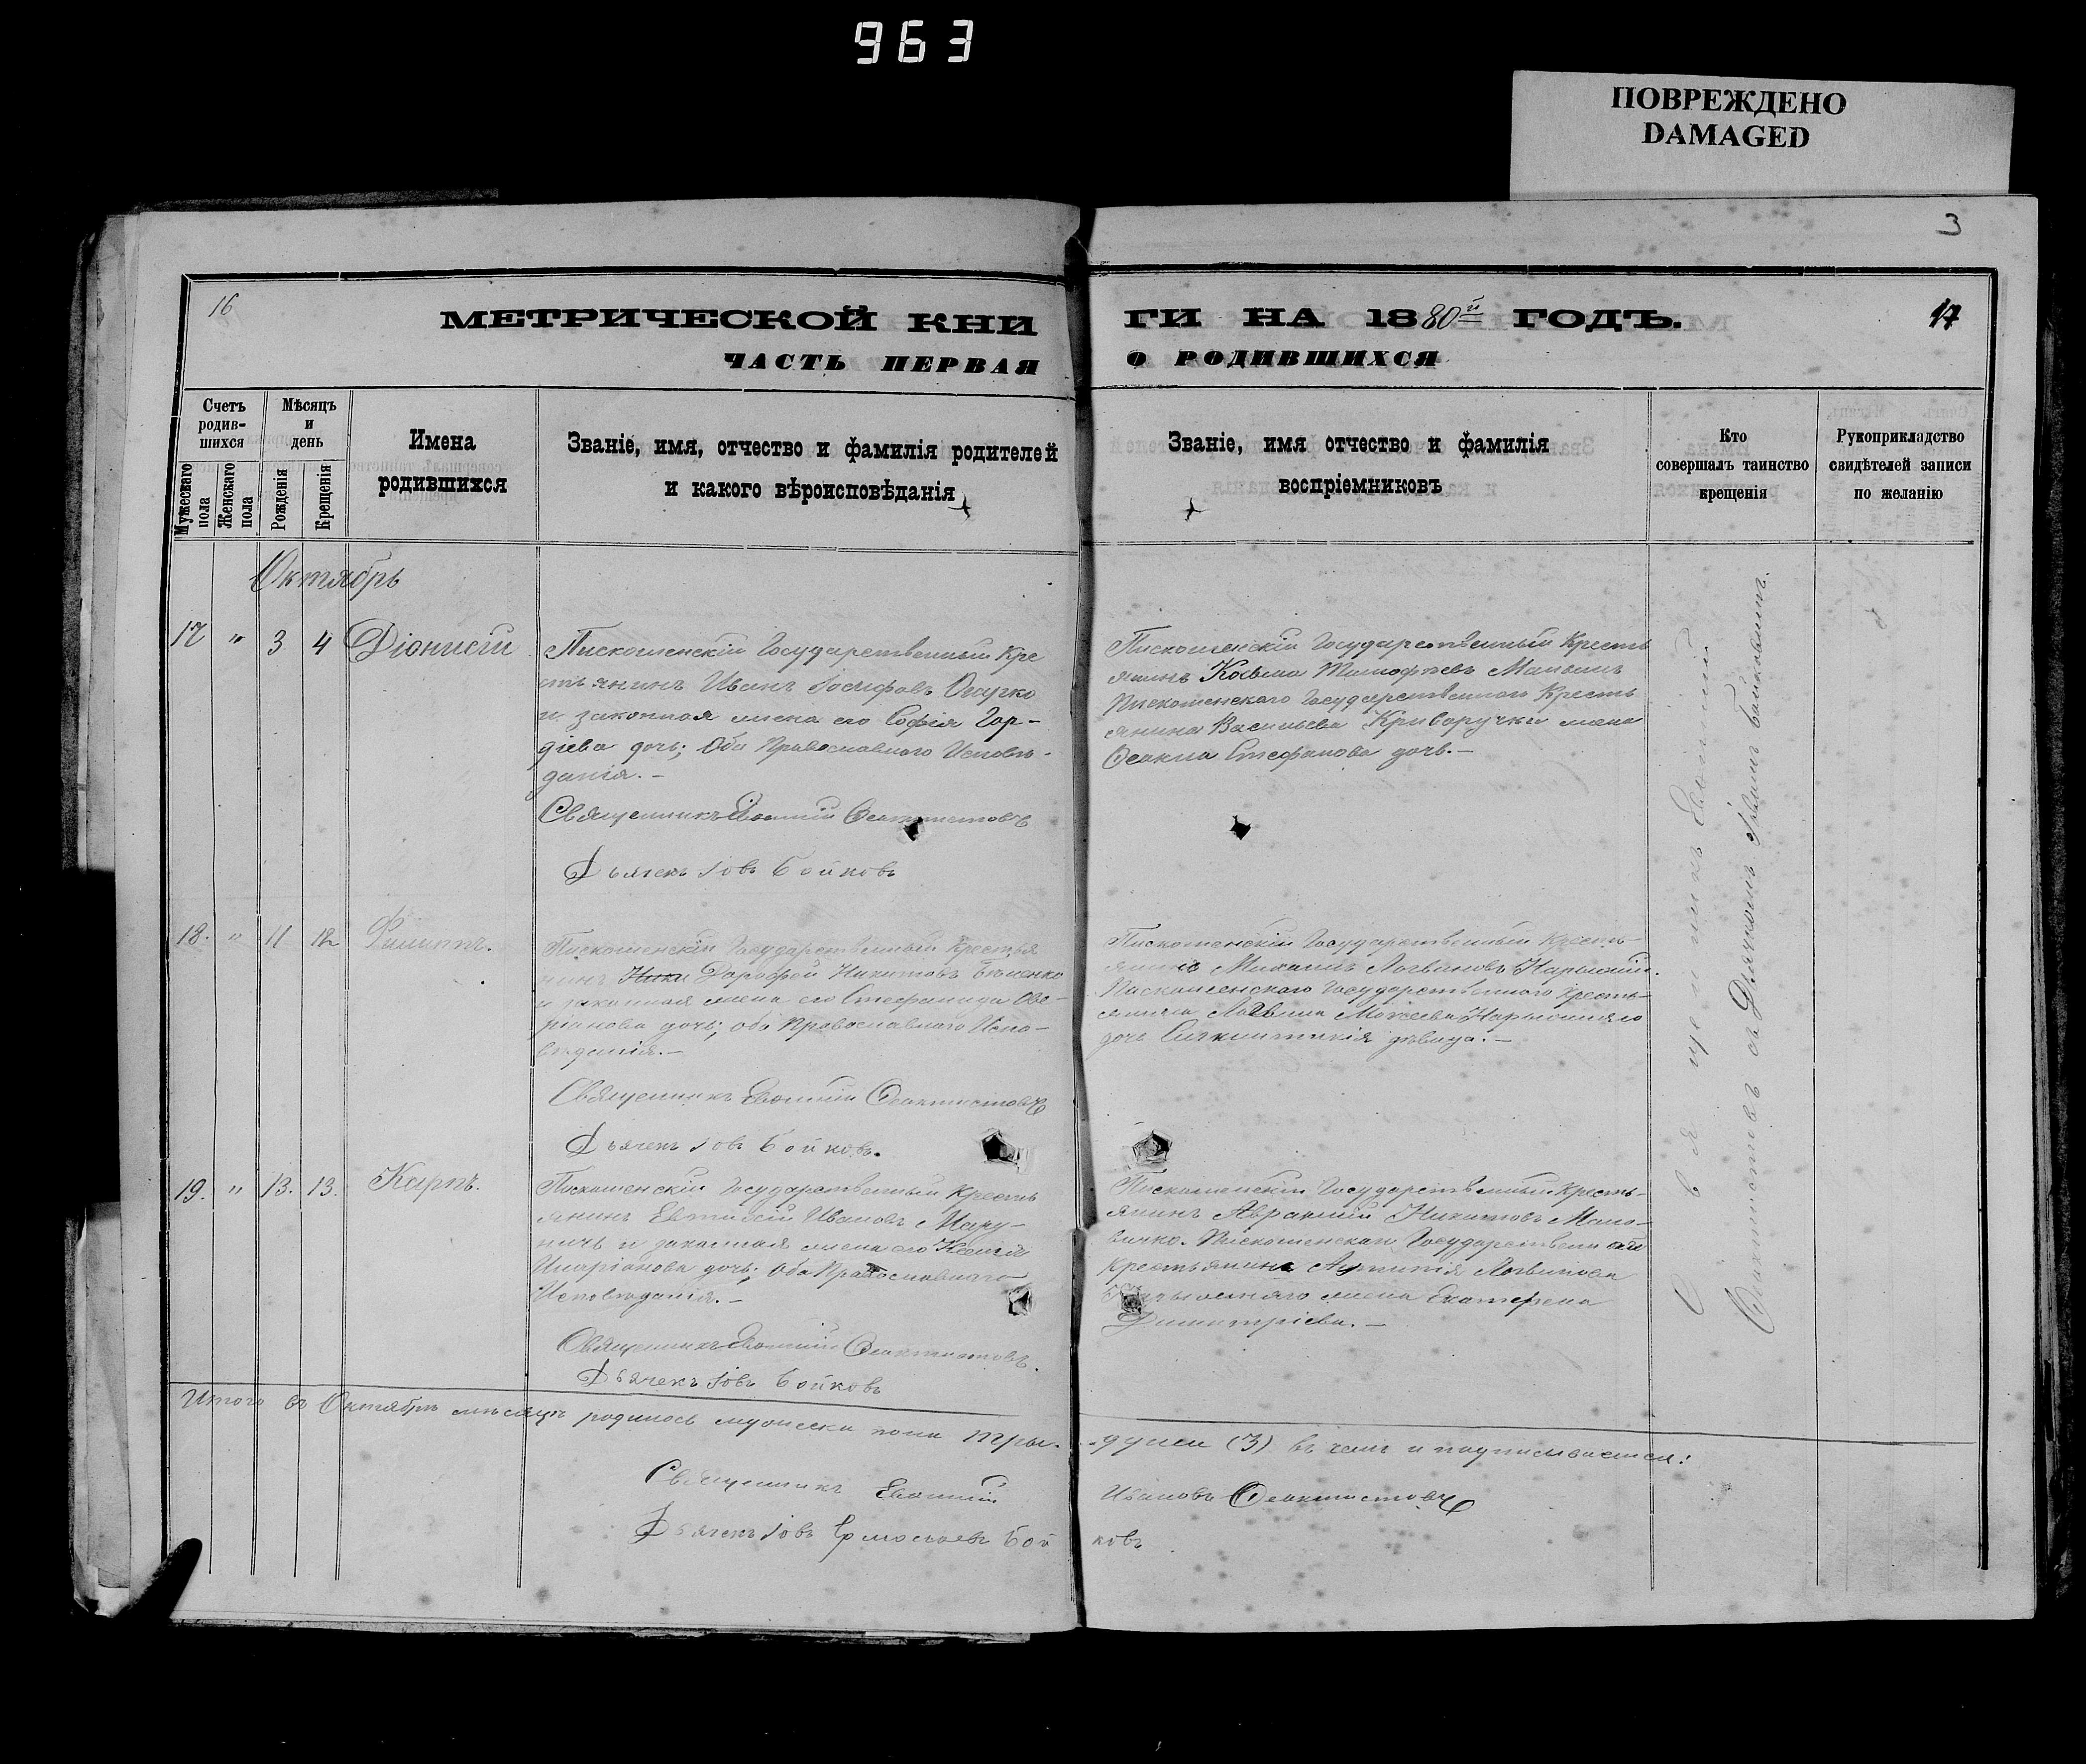 963
ПОВРЕЖДЕНО
DAMAGED
3
16
МЕТРИЧЕСКОЙ КНИ
ГИ НА 1880й ГОДЪ.
17
ЧАСТЬ ПЕРВАЯ
О РОДИВШИХСЯ
Счетъ родив-шихся
Мужескаго пола
Женскаго пола
Мѣсяцъ и день
Рожденія
Крещенія
Имена родившихся
Званіе, имя, отчество и фамилія родителей
и какого вѣроисповѣданія
Званіе, имя отчество и фамилія
воспріемниковъ
Кто
совершалъ таинство
крещенія
Рукоприкладство
свидѣтелей записи
по желанію
Октябрь
17 " 3 4 Діонисій
Пискошенскій Государственный Кре
стьянинъ Иванъ Іосифовъ
и законная жена его Софія Гор-
діева дочь; Оба Православного Исповѣ-
данія.-
Священникъ Евфимій Феоктистовъ
Дьячекъ Іовъ Бойковъ
Пискошенскій Государственный Кресть
янинъ Козьма Тимофѣевъ
Пискошенского Государственного Кресть
янина Васильева Криворучки жена
Стефанова дочь.-
18. " 11 12 Филиппъ.
Пискошенскій Государственный Крестья
нинъ Дорофей Никитовъ
и законная жена его Стефанида Ове-
ріанова дочь; оба Православного Испо-
вѣданія.-
Священникъ Евфимій Феоктистовъ
Дьячекъ Іовъ Бойковъ.
Пискошенскій Государственный Кресть-
янинъ Михаилъ Логвиновъ
Пискошенского Государственного Кресть-
янина Логвина Моисеева
дочь Синклитикія дѣвица.-
19. " 13. 13. Карпъ.
Пискошенскій Государственный Кресть
янинъ Евтихій Ивановъ Мару-
ничъ и законная жена его Ксенія
Иларіонова дочь; Оба Православного
Исповѣданія.-
Священникъ Евфимій Феоктистовъ.
Дьячекъ Іовъ Бойковъ
Пискошенскій Государственный Кресть-
янинъ Авраамій Никитовъ
Крестьянина Логвинова
жена Екатерина
Димитріева.-
Священникъ Евфимій
Феоктистовъ съ Дьячкомъ Іовомъ Бойковымъ.
Итого въ Октябрѣ мѣсяцѣ родилось мужеска пола три-
-души (3) въ чемъ и подписываемся:
Священникъ Евфимій
Ивановъ Феоктистовъ
Дьячекъ Іовъ Ермолаевъ Бой
ковъ